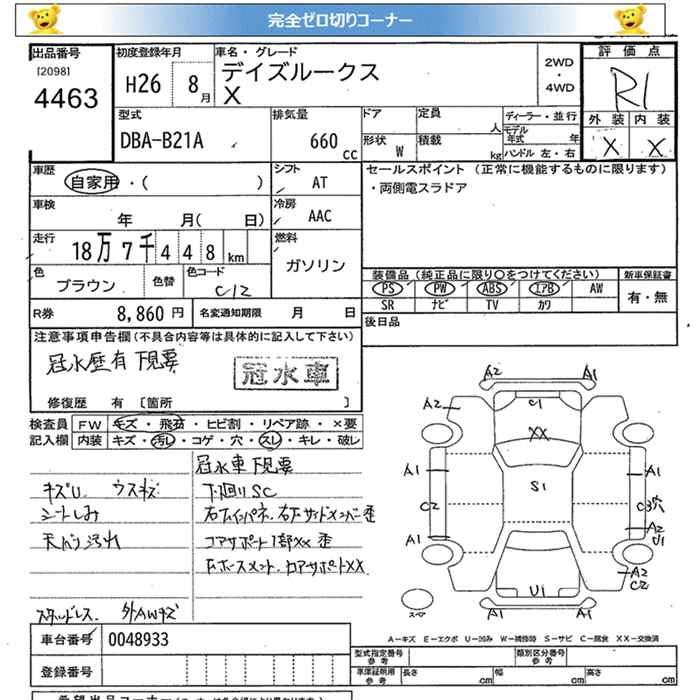 完全ゼロ切りコーナー
出品番号
[2098]
4463
初度登録年月
H26 8月
車名・グレード
デイズルークス
X
2WD
・
4WD
評価点
R1
外装 内装
X X
型式
DBA-B21A
排気量
660 cc
ドア
定員
人
形状 W
積載
kg
ディーラー・並行
モデル年式 年
ハンドル 左・右
車歴
自家用・( )
シフト
AT
セールスポイント (正常に機能するものに限ります)
・両側電スラドア
車検
年 月( 日)
冷房
AAC
走行
18万7千448km
燃料
ガソリン
色
ブラウン
色替
色コード
C12
装備品(純正品に限り○をつけてください)
新車保証書
PS PW ABS エアB AW
SR ナビ TV カワ
有・無
R券
8,860円
名変通知期限 月 日
後日品
注意事項申告欄(不具合内容等は具体的に記入して下さい)
冠水歴有 下見要
冠水車
修復歴 有 [箇所 ]
検査員記入欄
FW キズ・飛石・ヒビ割・リペア跡・×要
内装 キズ・汚レ・コゲ・穴・スレ・キレ・破レ
冠水車 下見要
キズU. ウスキズ
下廻りSC
シートしみ
天バリ汚れ
コアサポート1部XX 歪
スタッドレス. 外AWキズ
A2 A1
A2 C1 A1
XX
A1 A1
C2 S1 C3穴
A1 A2
U1
A2
C2
U1
スペア
A1 A1
A-キズ E-エクボ U-凹み W-補修跡 S-サビ C-腐食 XX-交換済
車台番号
0048933
登録番号
型式指定番号
参考
類別区分番号
参考
車庫証明用
参考
長さ cm
幅 cm
高さ cm